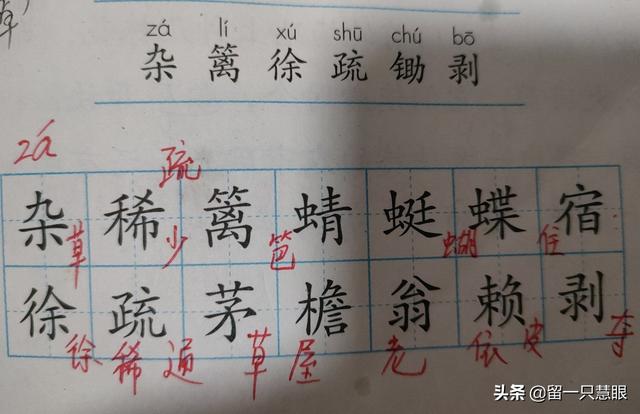 zá lí xú shū chú bō
杂 篱 徐 疏 锄 剥
zá 疏
杂 稀 篱 蜻 蜓 蝶 宿
草 少 笆 蝴 住
徐 疏 茅 檐 翁 赖 剥
徐 稀 通 草 屋 老 依 皮 夺
头条 @留一只慧眼